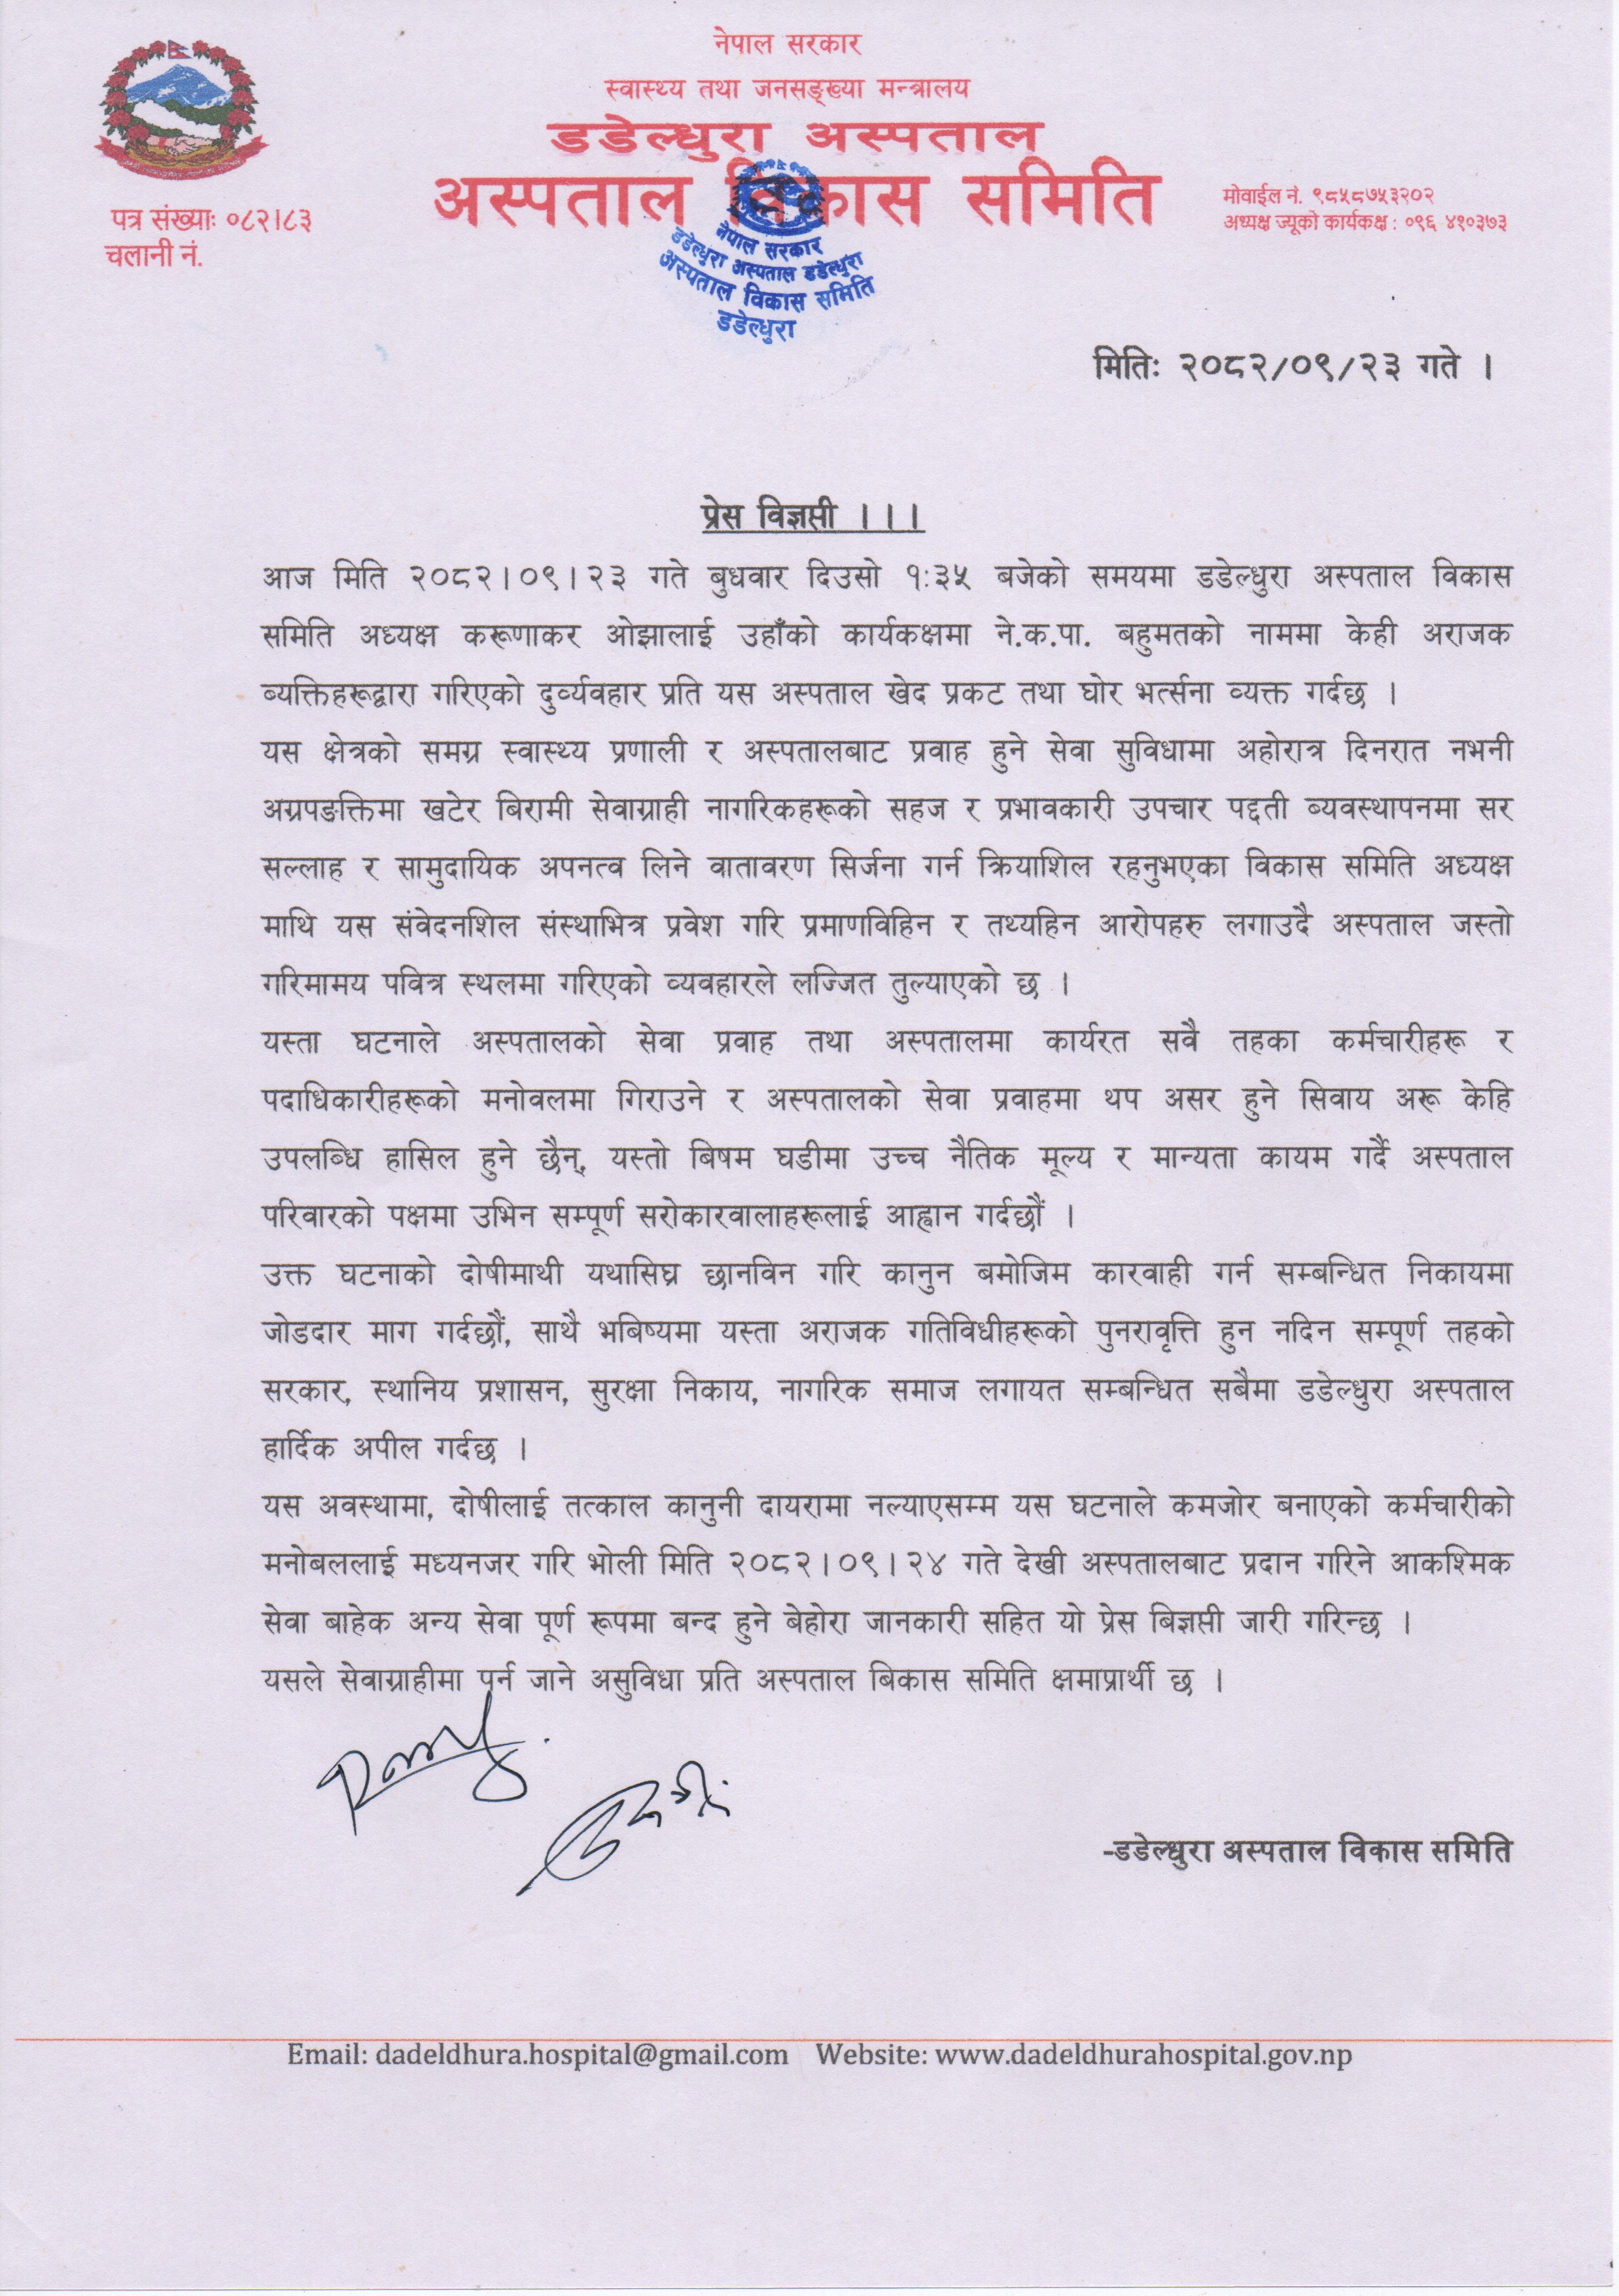 नेपाल सरकार
स्वास्थ्य तथा जनसङ्ख्या मन्त्रालय
डडेल्धुरा अस्पताल
अस्पताल विकास समिति
पत्र संख्याः ०८२।८३
चलानी नं.
मोवाईल नं. ९८५८७५३२०२
अध्यक्ष ज्यूको कार्यकक्ष : ०९६ ४१०३७३
नेपाल सरकार
डडेल्धुरा अस्पताल डडेल्धुरा
अस्पताल विकास समिति
डडेल्धुरा
मितिः २०८२/०९/२३ गते ।
प्रेस विज्ञप्ती ।।।
आज मिति २०८२।०९।२३ गते बुधवार दिउसो १:३५ बजेको समयमा डडेल्धुरा अस्पताल विकास
समिति अध्यक्ष करूणाकर ओझालाई उहाँको कार्यकक्षमा ने.क.पा. बहुमतको नाममा केही अराजक
ब्यक्तिहरूद्वारा गरिएको दुर्व्यवहार प्रति यस अस्पताल खेद प्रकट तथा घोर भर्त्सना व्यक्त गर्दछ ।
यस क्षेत्रको समग्र स्वास्थ्य प्रणाली र अस्पतालबाट प्रवाह हुने सेवा सुविधामा अहोरात्र दिनरात नभनी
अग्रपङक्तिमा खटेर बिरामी सेवाग्राही नागरिकहरूको सहज र प्रभावकारी उपचार पद्दती ब्यवस्थापनमा सर
सल्लाह र सामुदायिक अपनत्व लिने वातावरण सिर्जना गर्न क्रियाशिल रहनुभएका विकास समिति अध्यक्ष
माथि यस संवेदनशिल संस्थाभित्र प्रवेश गरि प्रमाणविहिन र तथ्यहिन आरोपहरु लगाउदै अस्पताल जस्तो
गरिमामय पवित्र स्थलमा गरिएको व्यवहारले लज्जित तुल्याएको छ ।
यस्ता घटनाले अस्पतालको सेवा प्रवाह तथा अस्पतालमा कार्यरत सवै तहका कर्मचारीहरू र
पदाधिकारीहरूको मनोवलमा गिराउने र अस्पतालको सेवा प्रवाहमा थप असर हुने सिवाय अरू केहि
उपलब्धि हासिल हुने छैन्, यस्तो बिषम घडीमा उच्च नैतिक मूल्य र मान्यता कायम गर्दै अस्पताल
परिवारको पक्षमा उभिन सम्पूर्ण सरोकारवालाहरूलाई आह्वान गर्दछौं ।
उक्त घटनाको दोषीमाथी यथासिघ्र छानविन गरि कानुन बमोजिम कारवाही गर्न सम्बन्धित निकायमा
जोडदार माग गर्दछौं, साथै भबिष्यमा यस्ता अराजक गतिविधीहरूको पुनरावृत्ति हुन नदिन सम्पूर्ण तहको
सरकार, स्थानिय प्रशासन, सुरक्षा निकाय, नागरिक समाज लगायत सम्बन्धित सबैमा डडेल्धुरा अस्पताल
हार्दिक अपील गर्दछ ।
यस अवस्थामा, दोषीलाई तत्काल कानुनी दायरामा नल्याएसम्म यस घटनाले कमजोर बनाएको कर्मचारीको
मनोबललाई मध्यनजर गरि भोली मिति २०८२।०९।२४ गते देखी अस्पतालबाट प्रदान गरिने आकश्मिक
सेवा बाहेक अन्य सेवा पूर्ण रूपमा बन्द हुने बेहोरा जानकारी सहित यो प्रेस बिज्ञप्ती जारी गरिन्छ ।
यसले सेवाग्राहीमा पर्न जाने असुविधा प्रति अस्पताल बिकास समिति क्षमाप्रार्थी छ ।
-डडेल्धुरा अस्पताल विकास समिति
Email: dadeldhura.hospital@gmail.com Website: www.dadeldhurahospital.gov.np